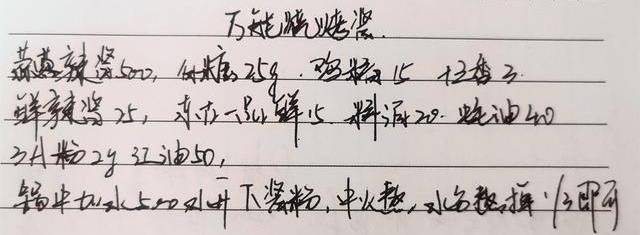 万能烧烤酱
蒜蓉辣酱500，白糖25g、鸡精15 十三香3
鲜辣酱25，东古一品鲜15、料酒20、蚝油40
2g 红油50，
锅中加水500水开下酱粉，中火熬，水分熬掉1/3即可